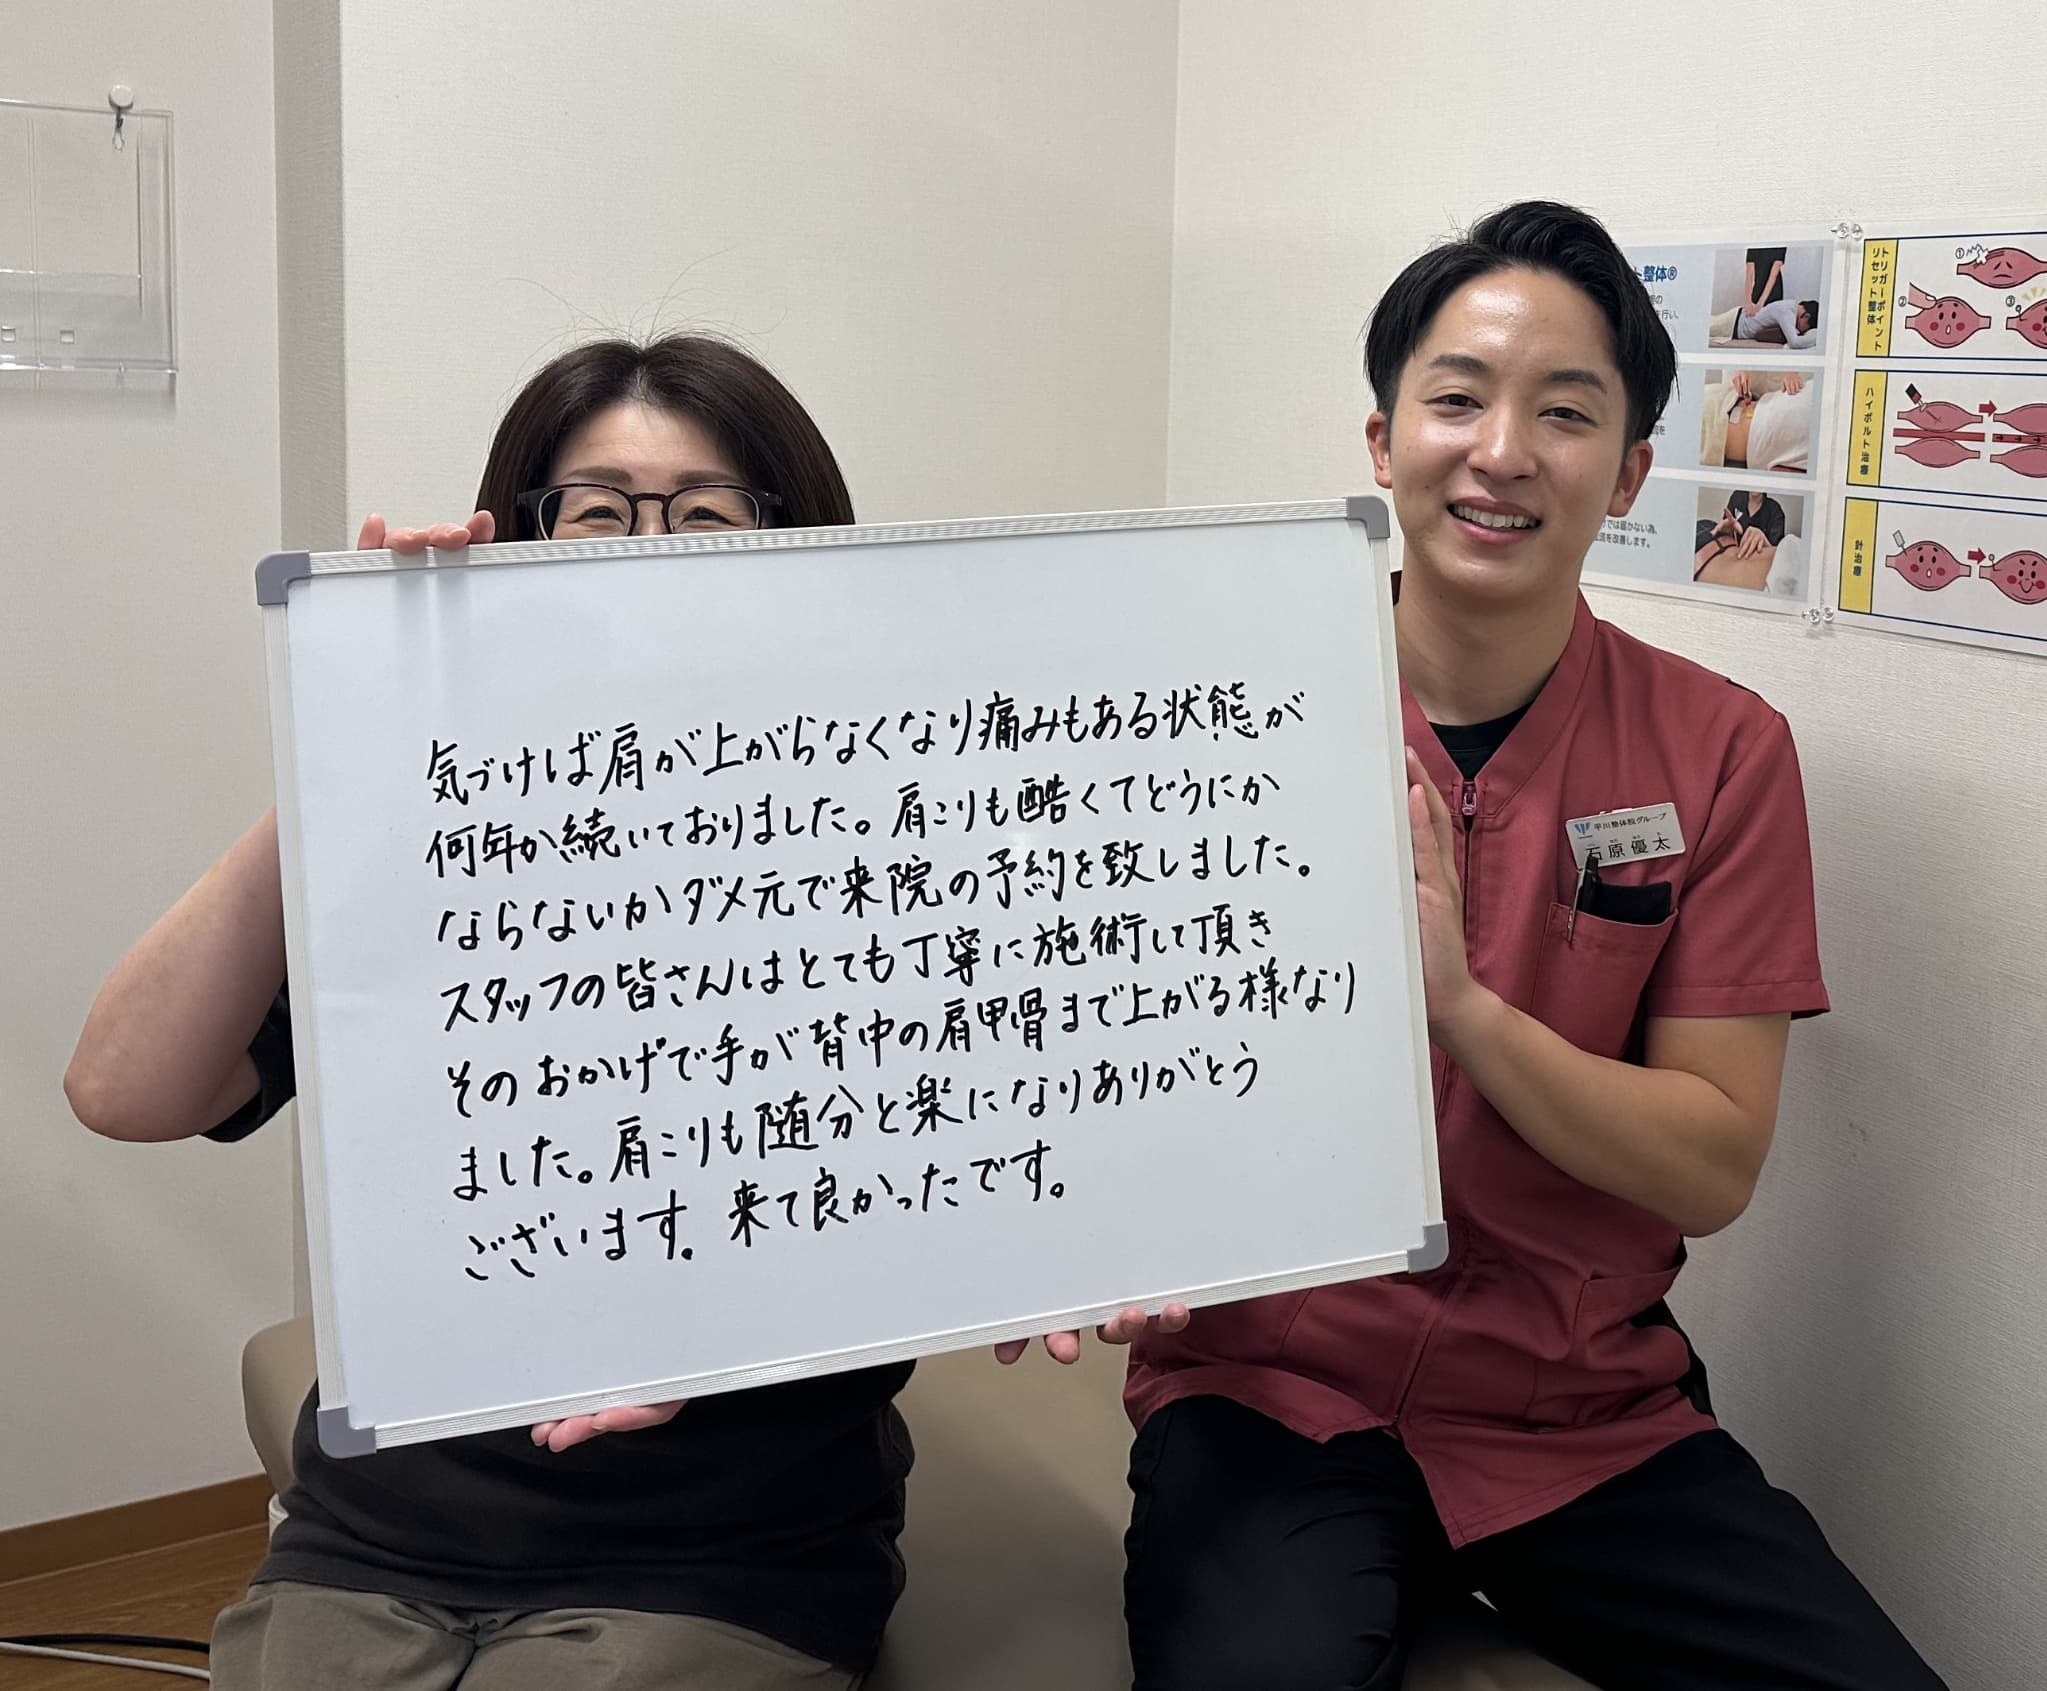 気づけば肩が上がらなくなり痛みもある状態が
何年か続いておりました。肩こりも酷くてどうにか
ならないかダメ元で来院の予約を致しました。
スタッフの皆さんはとても丁寧に施術して頂き
そのおかげで手が背中の肩甲骨まで上がる様なり
ました。肩こりも随分と楽になりありがとう
ございます。来て良かったです。
平川整体院グループ
石原優太
ト整体®
を行い、
では届かない為、
を改善します。
トリガーポイント
リセット整体
①
②
③
ハイボルト治療
針治療